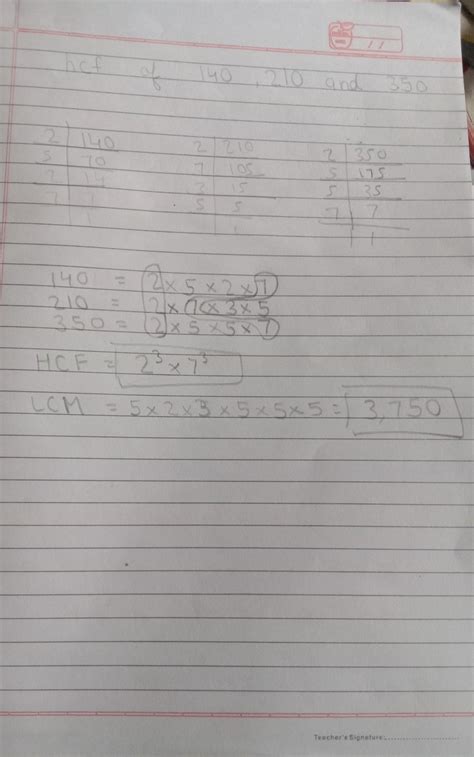 11
hcf of 140, 210 and 350
2 | 140   2 | 210   2 | 350
5 | 70   7 | 105   5 | 175
2 | 14   3 | 15   5 | 35
7 | 7   5 | 5   7 | 7
1   1   1
140 = 2 × 5 × 2 × 7
210 = 2 × 7 × 3 × 5
350 = 2 × 5 × 5 × 7
HCF = 2³ × 7³
LCM = 5 × 2 × 3 × 5 × 5 × 5 = 3,750
Teacher's Signature: